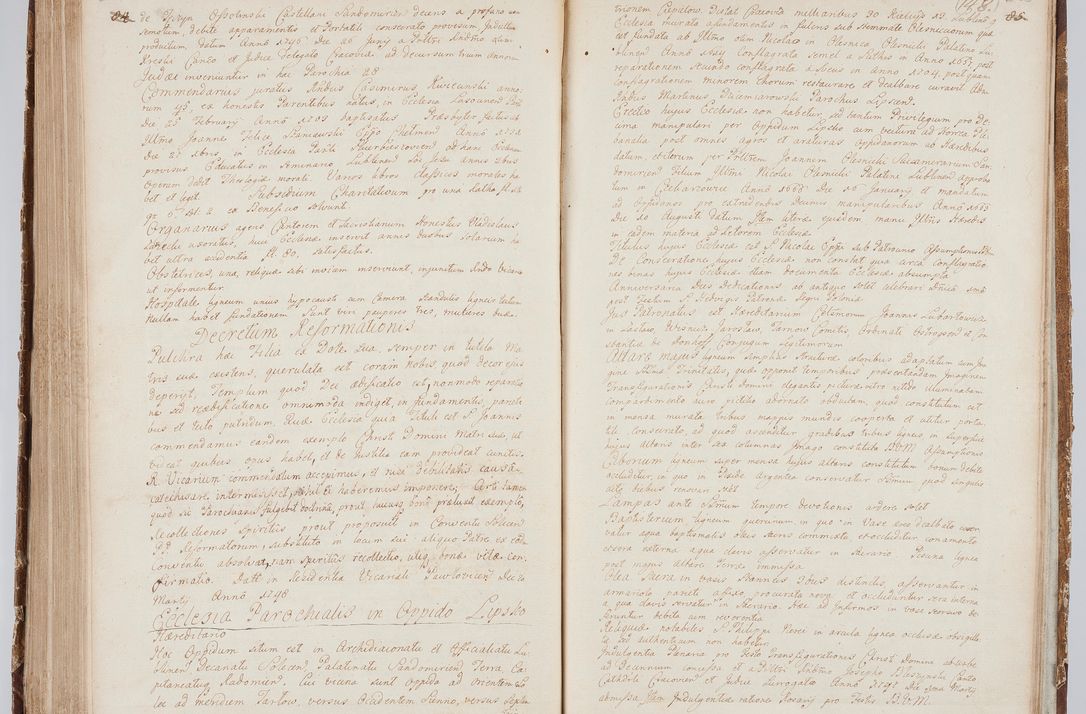 84.
de Tęczyn Ossolinski Castellani Sandomirien decens a profano se-
motum, debite apparamentis et Portatili consecrato provisum Indultum
productum Datum Anno 1746 Die 26 Juny a Illttri Andtno Adam
Preslo Canco et Judice Delegato Cracoviae ad decursum trium annorum
Judaei inveniuntur in hac Parochia 28
Commendarius juratus Andus Casimirus Kwiecinski anno-
rum 45, ex honestis Parentibus natus, in Ecclesia
Die 25 February Anno 1703 baptisatus Praesbyter factus ab
Illmo Joanne Felice Szaniawski Eppo Chelmen Anno
Die 21 xbris in Ecclesia ad hanc Ecclesiam
provisus Educatus in Seminario Lublinen annis tribus
operam dedit Theologiae morali. Varios libros classicos morales ha-
bet et legit Subsidium Charitativum pro una
gr. ex Beneficio solvunt
Organarius agens Cantorem et Sacristianum Honestus Vladislaus
uxoratus, huic Ecclesiae inservit annis duobus Solarium ha-
bet ultra accidentia fl. 80, satisfactus.
Obstetrices, una, reliquae sibi invicem inserviunt, injunctum Rndo Vicario
ut informentur
Hospitale ligneum unius hypocausti cum Camera Scandulis ligneis tectum
Nullam habet fundationem Sunt viri pauperes tres, mulieres duae.
Decretum Reformationis
Pulchra haec Filia ex Dote sua, semper in tutela Ma-
tris suae existens, querulata est coram Nobis, quod decor ejus
deperyt, Templum quod Dei aedificatio est, non modo reparatio-
ne sed reaedificatione omnimoda indiget, in fundamentis, parieti-
bus et tecto putridum. Quae Ecclesia quia Tituli est S. Joannis
commendamus eandem exemplo Christi Domini Matri suae, ut
videat quibus opus habet, et de Justitia eam provideat cunctis.
R. Vicarium commendatum accepimus, et nisi debilitatis causa
catechisare intermisisset, nihil ei haberemus imponere; Certe tamen
quod sic Parochianis fulgebit doctrina, prout hucusq bono praeluxit exemplo,
Recollectiones Spiritus prout proposuit in Conventu Solecen
PP. Reformatorum, substituto in locum sui aliquo Patre ex eodem
Conventu absolvat, nam spiritus recollectio, uliq bonae vitae con-
firmatio. Datt in Residentia Vicariali Pawlovicen Die 20
Marty Anno 1748
Ecclesia Parochialis in Oppido Lipsko
Haereditario
Hoc Oppidum situm est in Archidiaconatu et Officialatu Lu-
blinen Decanatu Solecen, Palatinatu Sandomirien Terra Ca-
pitaneatuq Radomien. Cui vicina sunt Oppida ad Orientem So-
lec ad meridiem Tarlow, versus Occidentem Sienno, versus Septen-
85.
trionem Ciepielow Distat Cracovia milliaribus 30 Kielcys 12 Lublino
Ecclesia murata a fundamentis in Fulcris sub Stemmate Olesnicianum qua
est fundata ab Illmo olim Nicolao in Olesnica Olesnicki Palatino Lu-
blinen Anno 1614 Conflagrata semel a Suethis in Anno 1657, post
reparationem secundo conflagrata a Suecis in anno 1704, post quam
conflagrationem minorem Chorum restaurare et dealbare curavit Adm
Rndus Martinus Dziemiarowski Parochus Lipscen.
Erectio hujus Ecclesiae non habetur, sed tantum Privilegium pro De-
cima manipulari per Oppidum Lipsko cum vectura ad Horrea Ple-
banalia post omnes agros et araturas Oppidanorum ab Haeredibus
datam, et litorum per Illttrem Joannem Olesnicki Succamerarium San-
domirien Filium Illmi Nicolai Olesnicki Palatini Lublinen approba-
tum in Ciecharzowice Anno 1663 Die 16 January, et mandatum
ad Oppidanos pro extradendis Decimis manipularibus Anno 1663
Die 20 Augusti Datum Item literae ejusdem manu Illttris Haeredis
in eadem materia ad Rectorem Ecclesiae
Titulus hujus Ecclesiae est S. Nicolai Eppi sub Patrocinio Assumptionis
De Consecratione hujus Ecclesiae non constat quia circa conflagratio-
nes binas hujus Ecclesiae etiam documenta Ecclesiae absumpta.
Anniversaria Dies Dedicationis ab antiquo solet celebrari Dnica ima
post Festum S. Hedvigis Patronae Regni Poloniae
Jus Patronatus est Haereditarium Celsimorum Joannis Lubartowicz
in Wisnicz, Jaroslaw, Tarnow Comitis Ordinati Ostrogsen et Con-
stantiae de Donhoff Conjugum legitimorum
Altare majus ligneum simplicis structurae coloribus adaptatum cum Ima-
gine SSmae Trinitatis, quae opportunis temporibus praesentandam Imaginem
Transfigurationis Christi Domini elegantis picturae intro nitide illuminatam
comparimento auro pictisq abornato obductam, quod constitutum est
in mensa murata tribus mappis mundis cooperta et utitur porta-
tili consecrato, ad quod ascenditur gradibus tribus ligneis in superficie
hujus altaris inter sex columnas Imago constituta B.V.M. Assumptionis
Ciborium ligneum super mensa hujus altaris constitutum bonum debite
occluditur, in quo in Pixide Argentea conservatur SSmum quod singulis
octo diebus renovari solet
Lampas ante SSmum tempore devotionis ardere solet
Baptisterium ligneum quernum, in quo in Vase dealbato conser-
vatur aqua baptismalis oleis sacris commixta et occluditur conamento
extera externa aqua clavis asservatur in Aerario. Piscina lignea
post majus altare Terrae immissa
Olea Sacra in vasis Stanneis Tribus distinctis, asservantur in
armariolo parieti affixo procurata nova et occluduntur sera interna
a qua clavis servatur in Aerario. Hoc ad Infirmos in vase seorsivo de-
feruntur debita cum reverentia
Reliquiae notabiles S. Philippi Nerei in arcula lignea occlusae obsigilla-
tae sed authenticum non habetur
Indulgentia Plenaria pro Festo Transfigurationis Christi Domini ab urbe
ad Decennium concessa et a Illttri Andtmo Josepho Olszynski Canco
Cathedrli Cracovien et Judice Surogato Anno 1741 Die ima Marty
admissa, Item Indulgentiae ratione Rosary pro Festis B.V.M.